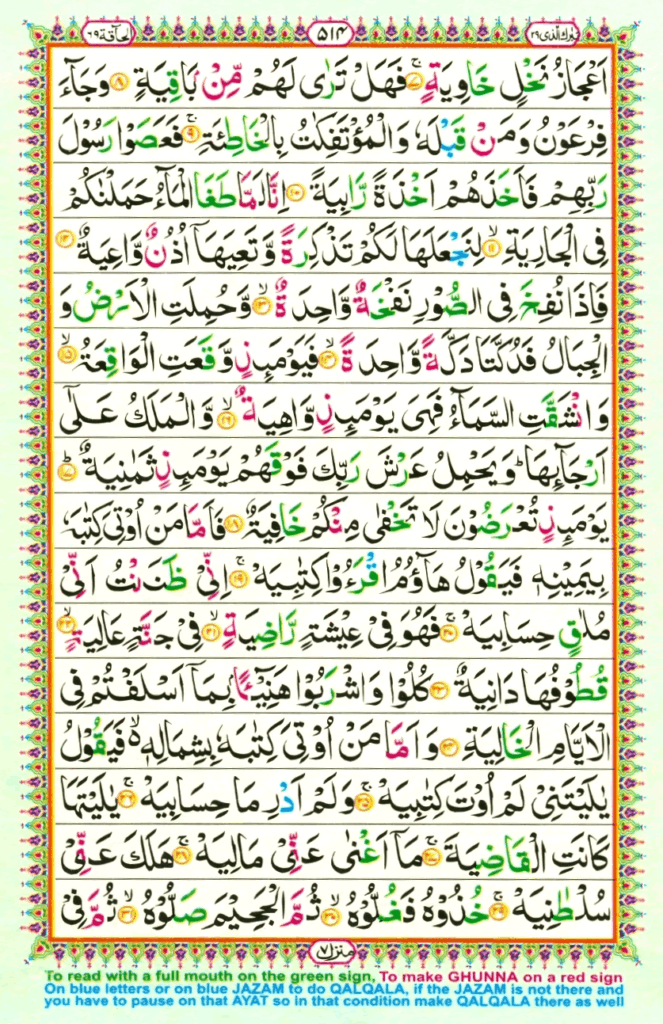 الحآقة ٦٩
٥١٤
تبٰرك الذی ٢٩
اَعْجَازُ نَخْلٍ خَاوِیَةٍ ۚ﴿۷﴾ فَهَلْ تَرٰی لَهُمْ مِّنْۢ بَاقِیَةٍ ﴿۸﴾ وَجَآءَ
فِرْعَوْنُ وَمَنْ قَبْلَهٗ وَالْمُؤْتَفِكٰتُ بِالْخَاطِئَةِ ۚ﴿۹﴾ فَعَصَوْا رَسُوْلَ
رَبِّهِمْ فَاَخَذَهُمْ اَخْذَةً رَّابِیَةً ﴿۱۰﴾ اِنَّا لَمَّا طَغَا الْمَآءُ حَمَلْنٰكُمْ
فِی الْجَارِیَةِ ۙ﴿۱۱﴾ لِنَجْعَلَهَا لَكُمْ تَذْكِرَةً وَّتَعِیَهَاۤ اُذُنٌ وَّاعِیَةٌ ﴿۱۲﴾
فَاِذَا نُفِخَ فِی الصُّوْرِ نَفْخَةٌ وَّاحِدَةٌ ۙ﴿۱۳﴾ وَّحُمِلَتِ الْاَرْضُ وَ
الْجِبَالُ فَدُكَّتَا دَكَّةً وَّاحِدَةً ۙ﴿۱۴﴾ فَیَوْمَئِذٍ وَّقَعَتِ الْوَاقِعَةُ ۙ﴿۱۵﴾
وَانْشَقَّتِ السَّمَآءُ فَهِیَ یَوْمَئِذٍ وَّاهِیَةٌ ۙ﴿۱۶﴾ وَّالْمَلَكُ عَلٰۤی
اَرْجَآئِهَا ؕ وَیَحْمِلُ عَرْشَ رَبِّكَ فَوْقَهُمْ یَوْمَئِذٍ ثَمٰنِیَةٌ ؕ﴿۱۷﴾
یَوْمَئِذٍ تُعْرَضُوْنَ لَا تَخْفٰی مِنْكُمْ خَافِیَةٌ ﴿۱۸﴾ فَاَمَّا مَنْ اُوْتِیَ كِتٰبَهٗ
بِیَمِیْنِهٖ فَیَقُوْلُ هَآؤُمُ اقْرَءُوْا كِتٰبِیَهْ ۚ﴿۱۹﴾ اِنِّیْ ظَنَنْتُ اَنِّیْ
مُلٰقٍ حِسَابِیَهْ ۚ﴿۲۰﴾ فَهُوَ فِیْ عِیْشَةٍ رَّاضِیَةٍ ۙ﴿۲۱﴾ فِیْ جَنَّةٍ عَالِیَةٍ ۙ﴿۲۲﴾
قُطُوْفُهَا دَانِیَةٌ ﴿۲۳﴾ كُلُوْا وَاشْرَبُوْا هَنِیْٓئًۢا بِمَاۤ اَسْلَفْتُمْ فِی
الْاَیَّامِ الْخَالِیَةِ ﴿۲۴﴾ وَاَمَّا مَنْ اُوْتِیَ كِتٰبَهٗ بِشِمَالِهٖ ۙ۬ فَیَقُوْلُ
یٰلَیْتَنِیْ لَمْ اُوْتَ كِتٰبِیَهْ ۚ﴿۲۵﴾ وَلَمْ اَدْرِ مَا حِسَابِیَهْ ۚ﴿۲۶﴾ یٰلَیْتَهَا
كَانَتِ الْقَاضِیَةَ ۚ﴿۲۷﴾ مَاۤ اَغْنٰی عَنِّیْ مَالِیَهْ ۚ﴿۲۸﴾ هَلَكَ عَنِّیْ
سُلْطٰنِیَهْ ۚ﴿۲۹﴾ خُذُوْهُ فَغُلُّوْهُ ۙ﴿۳۰﴾ ثُمَّ الْجَحِیْمَ صَلُّوْهُ ۙ﴿۳۱﴾ ثُمَّ فِیْ
منزل ٧
To read with a full mouth on the green sign, To make GHUNNA on a red sign
On blue letters or on blue JAZAM to do QALQALA, if the JAZAM is not there and
you have to pause on that AYAT so in that condition make QALQALA there as well